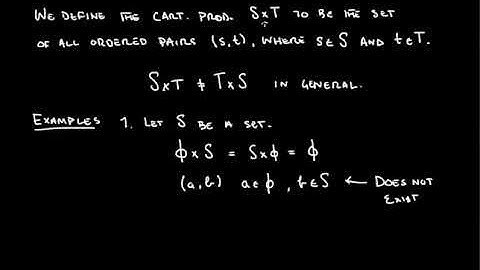 WE DEFINE THE CART. PROD. S×T TO BE THE SET
OF ALL ORDERED PAIRS (s,t), WHERE s∈S AND t∈T.
S×T ≠ T×S IN GENERAL.
EXAMPLES 1. LET S BE A SET.
ϕ×S = S×ϕ = ϕ
(a,b) a∈ϕ, b∈S ← DOES NOT
EXIST